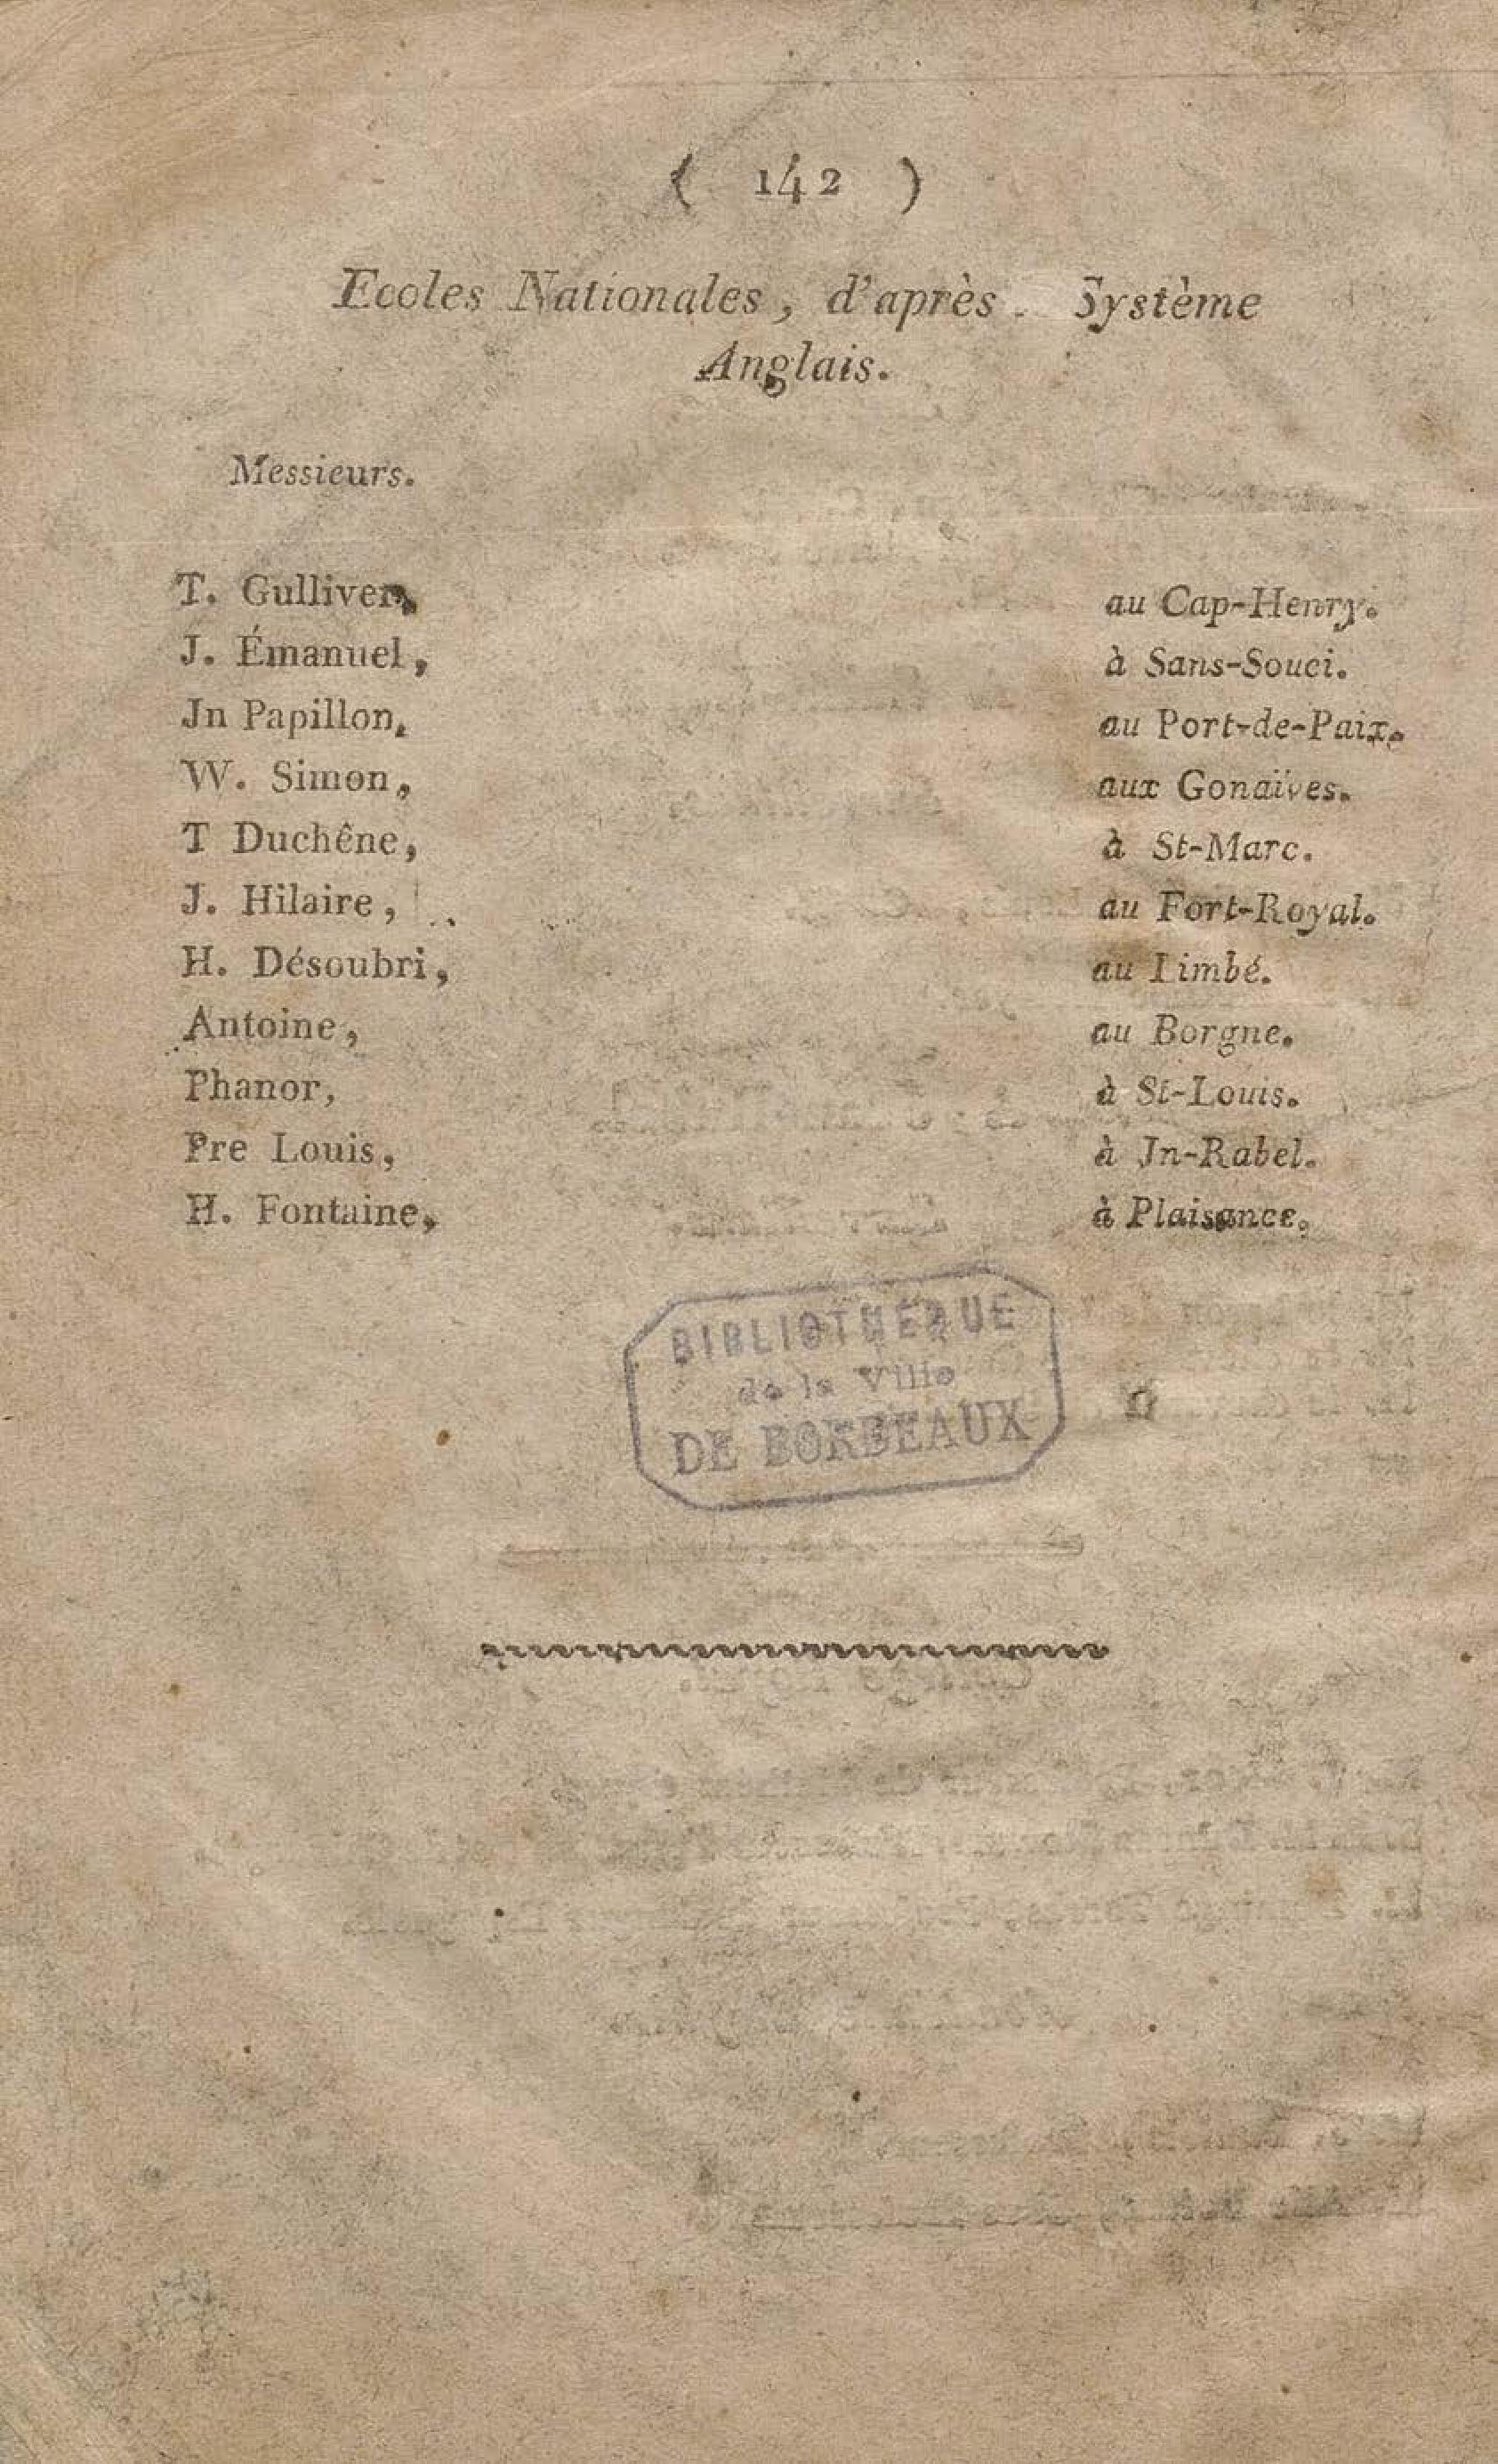 ( 142 )
Ecoles Nationales, d'après Système
Anglais.
Messieurs.
T. Gulliver, au Cap-Henry.
J. Émanuel, à Sans-Souci.
Jn Papillon, au Port-de-Paix.
W. Simon, aux Gonaïves.
T Duchêne, à St-Marc.
J. Hilaire, au Fort-Royal.
H. Désoubri, au Limbé.
Antoine, au Borgne.
Phanor, à St-Louis.
Pre Louis, à Jn-Rabel.
H. Fontaine, à Plaisance.
BIBLIOTHEQUE
de la Ville
DE BORDEAUX